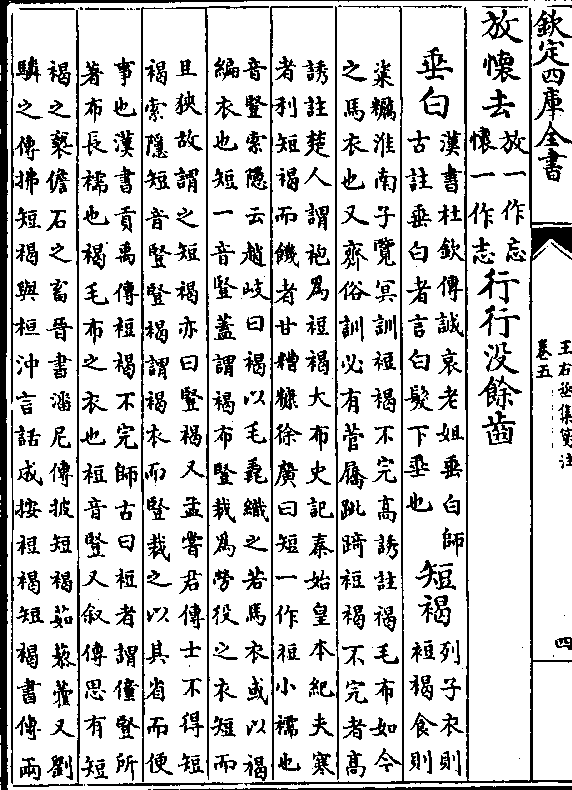 欽定四庫全書
王右丞集箋注
卷五
四
放懷去放一作忘
懷一作志行行没餘齒
垂白漢書杜欽傳誠哀老姐垂白師
古註垂白者言白髮下垂也短褐列子衣則
裋褐食則
粢糲淮南子覽冥訓短褐不完高誘註褐毛布如今
之馬衣也又齊俗訓必有菅屩跐踦短褐不完者高
誘註楚人謂袍為裋褐大布史記秦始皇本紀夫寒
者利短褐而饑者甘糟糠徐廣曰短一作裋小襦也
音豎索隱云趙岐曰褐以毛毳織之若馬衣或以褐
編衣也短一音豎蓋謂褐布豎裁為勞役之衣短而
且狹故謂之短褐亦曰豎褐又孟嘗君傳士不得短
褐索隱短音豎豎褐謂褐衣而豎裁之以其省而便
事也漢書貢禹傳裋褐不完師古曰裋者謂僮豎所
著布長襦也褐毛布之衣也裋音豎又叙傳思有短
褐之褻儋石之畜晉書潘尼傳披短褐茹藜藿又劉
驎之傳拂短褐與桓沖言話成按裋褐短褐書傳兩